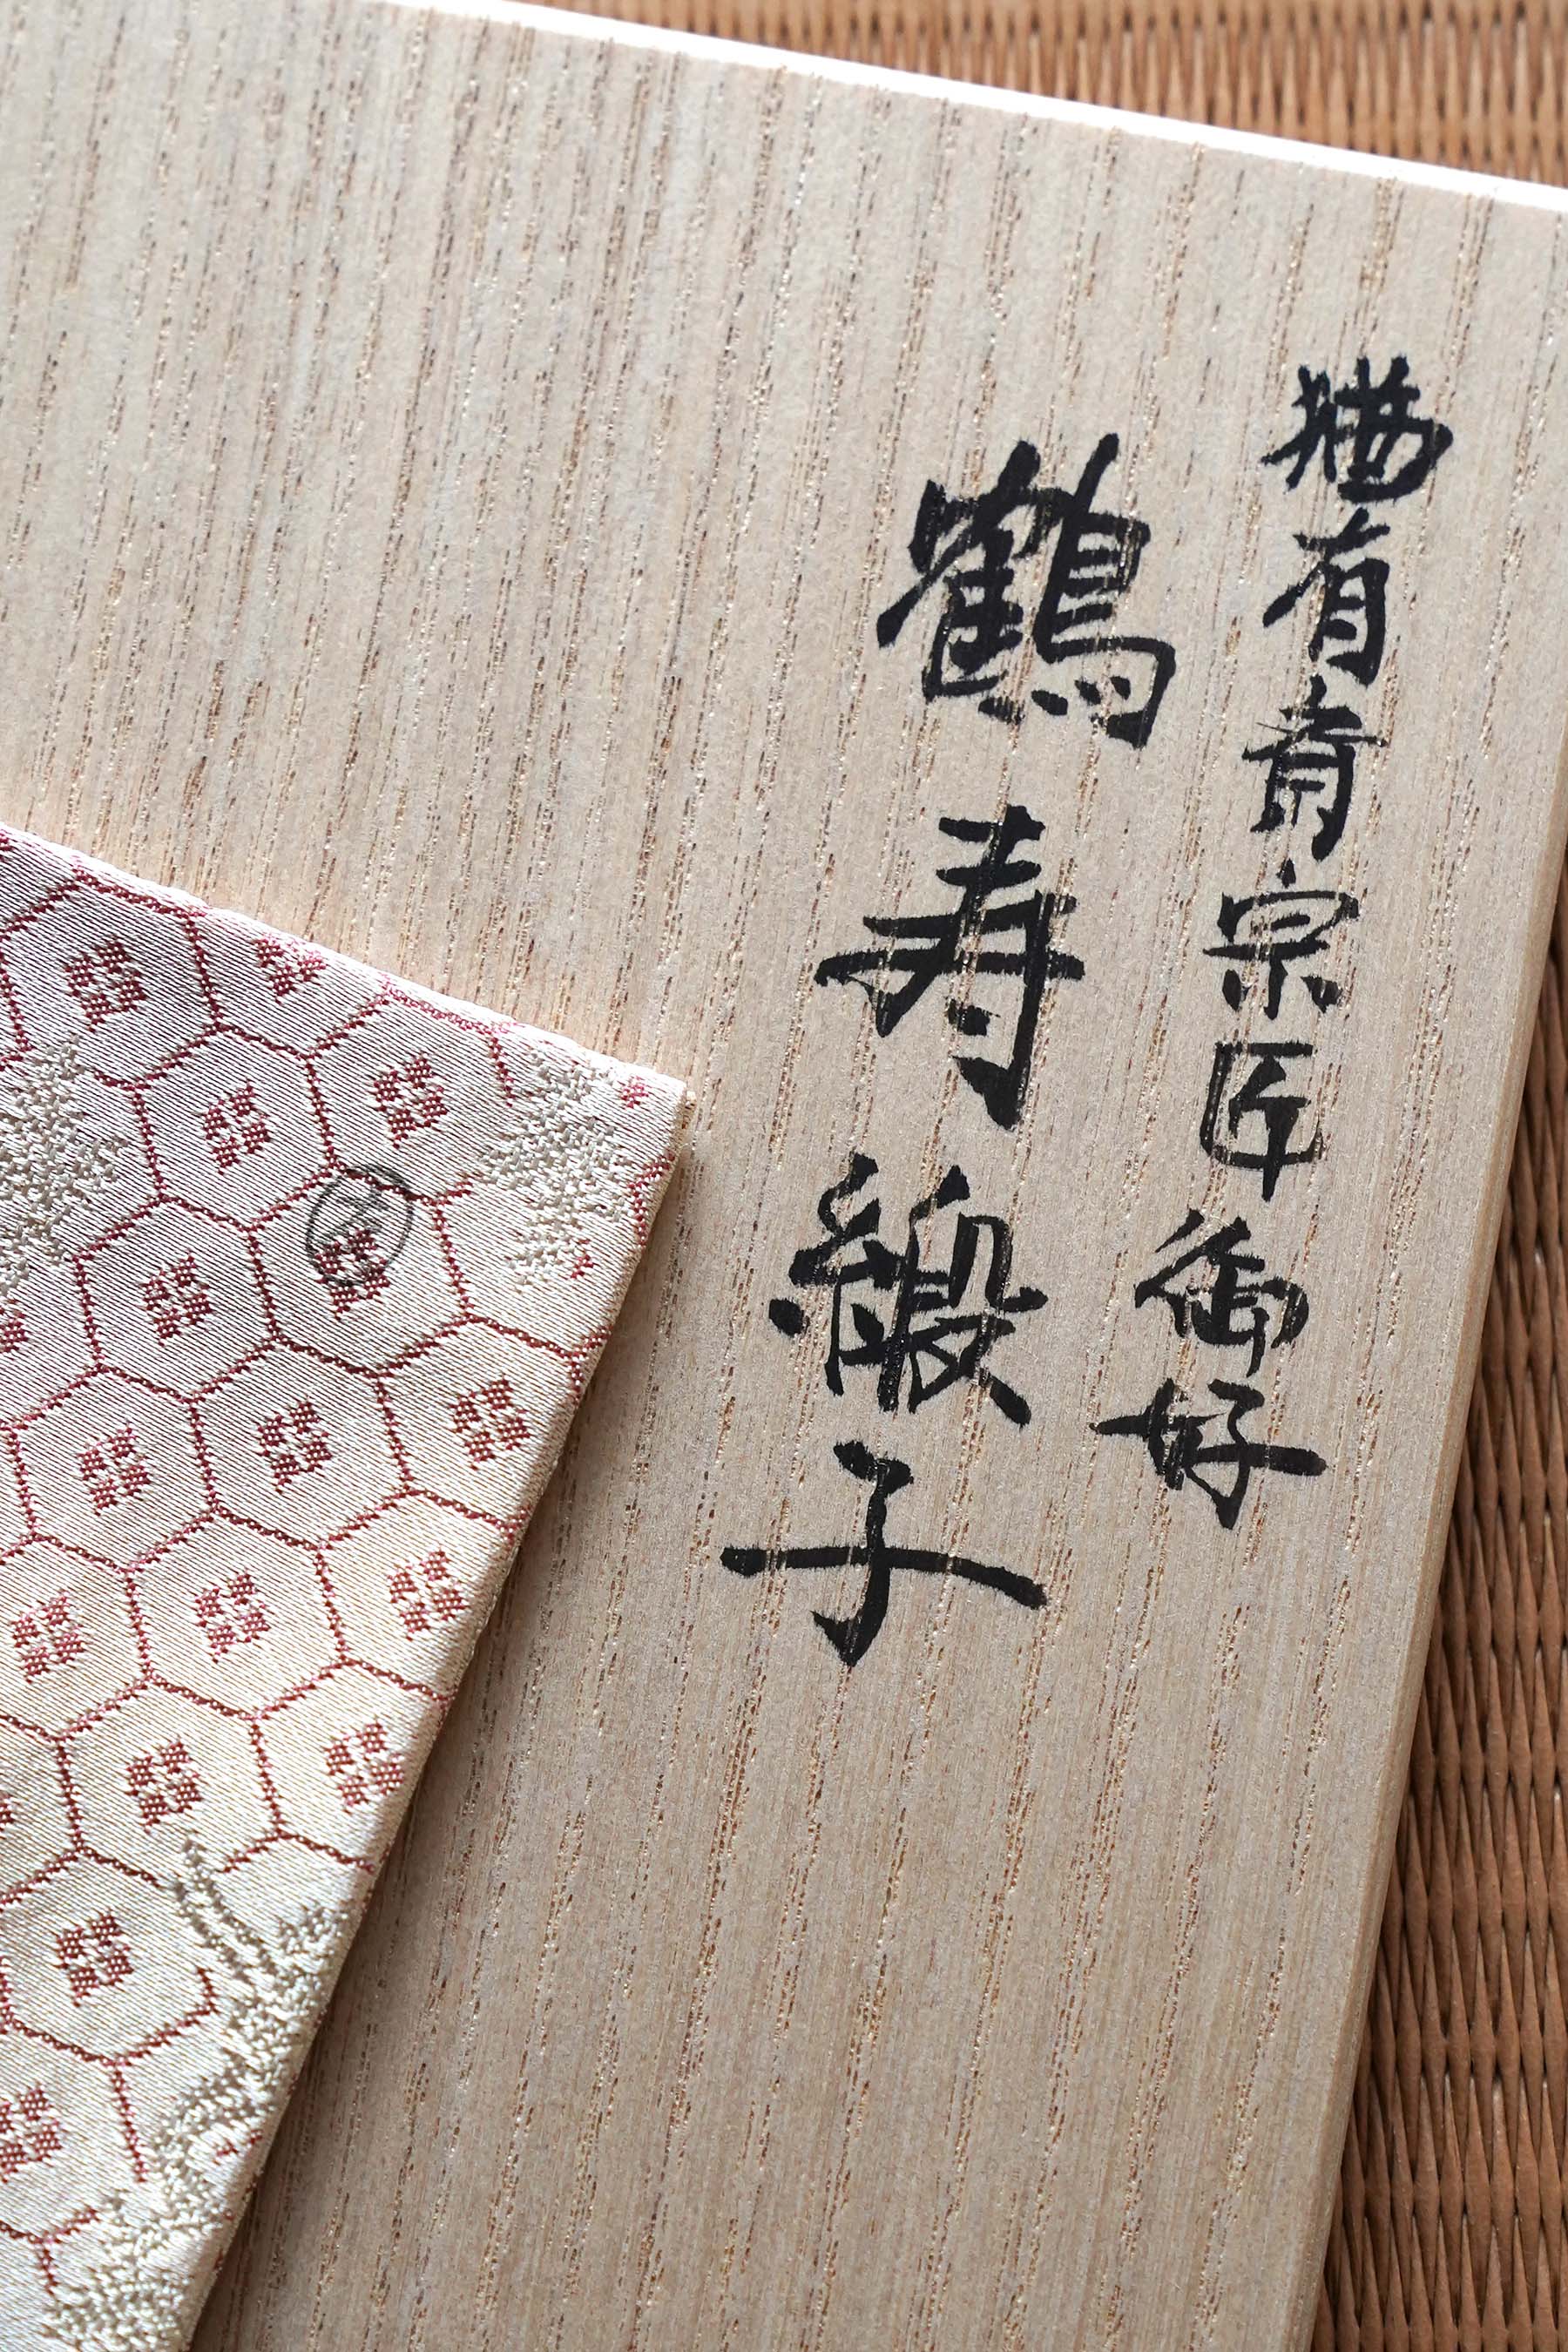 猶有斎宗匠御好
鶴寿緞子